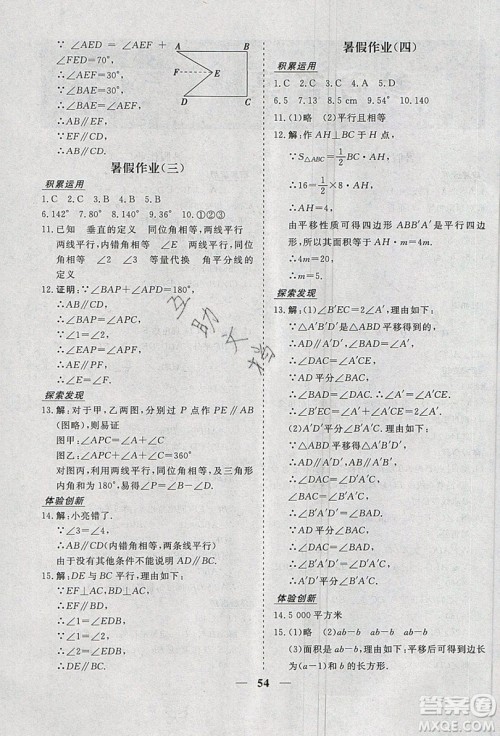 ∵ ∠AED = ∠AEF +
∠FED=100°,
∠FED=30°,
∴ ∠AEF=70°.
∵ ∠BAE=70°,
∴ ∠BAE=∠AEF,
∴ AB∥EF,
∴ AB∥CD.
A
B
F
E
D
C
暑假作业(三)
积累运用
1.C 2.C 3.C 4.D 5.B
6.142° 7.80° 8.B 9.70° 10.①②③
11.已知 垂直的定义 同位角相等,两线平行
两线平行,内错角相等 ∠E 两线平行,同
位角相等 ∠2 ∠3 等量代换 角平分线的
定义
12.证明:∵∠BAP+∠APD=180°,
∴AB∥CD,
∴∠BAP=∠APC,
又∵∠1=∠2,
∴∠EAP=∠APF,
∴AE∥PF,
∴∠E=∠F.
探索发现
13.解:对于甲,乙两图,分别过 P 点作 PE∥AB
(图略),则易证
图甲:∠APC=∠A+∠C
图乙:∠APC+∠A+∠C=360°
对图丙,利用两线平行,同位角相等,及三角形
内角和为 180°,易得∠C=∠P+∠A.
体验创新
14.解:小亮错了.
∵∠1=∠3,
∴AB∥CD(内错角相等,两条线平行)
由于没有其他条件不能说明 AD∥BC.
15.解:DE 与 BC 平行,理由如下:
∵EF⊥AC,BD⊥AC,
∴EF∥BD,
∴∠2=∠3,
∵∠1=∠2,
∴∠1=∠3,
∴DE∥BC.
暑假作业(四)
积累运用
1.C 2.C 3.A 4.D 5.C
6.5 7.13 8.5 cm 9.54° 10.140
11.(1)略 (2)平行且相等
12.解:作 AH⊥BC 于 H 点,
∵S△ABC=1/2 BC·AH,
∴16=1/2×8·AH,
∴AH=4,
由平移性质可得四边形 ABB′A′是平行四边
形,所以其面积等于 AH·m=4m.
∴4m=20,
∴m=5.
探索发现
13.解:(1)∠B′EC=2∠A′,理由如下:
∵△A′B′D′是△ABD 平移得到的,
∴∠DAC=∠A′CE,
∴∠BAD=∠A′,∠B′EC=∠BAC.
∵AD 平分∠BAC,
∴∠DAC=∠BAD,∴∠A′=∠A′CE.
∴∠B′EC=2∠A′.
(2)A′D′平分∠B′A′C,理由如下:
∵△A′B′D′是△ABD 平移得到的,
∴∠B′A′D′=∠BAD,
∵∠B′A′C=
∠BAC,∴∠B′A′D′=∠BAD,
∵AD 平分∠BAC,
∴∠BAD=1/2∠BAC,
∴∠B′A′D′=1/2∠B′A′C,
∴A′D′平分∠B′A′C.
体验创新
14.5 000 平方米
15.(1)略 (2)ab-b ab-b ab-b
(3)面积是 ab-b,理由如下:平移后,得到边长
为(a-1)和 b 的长方形.
54
互助文档
答案圈
MXQE.COM